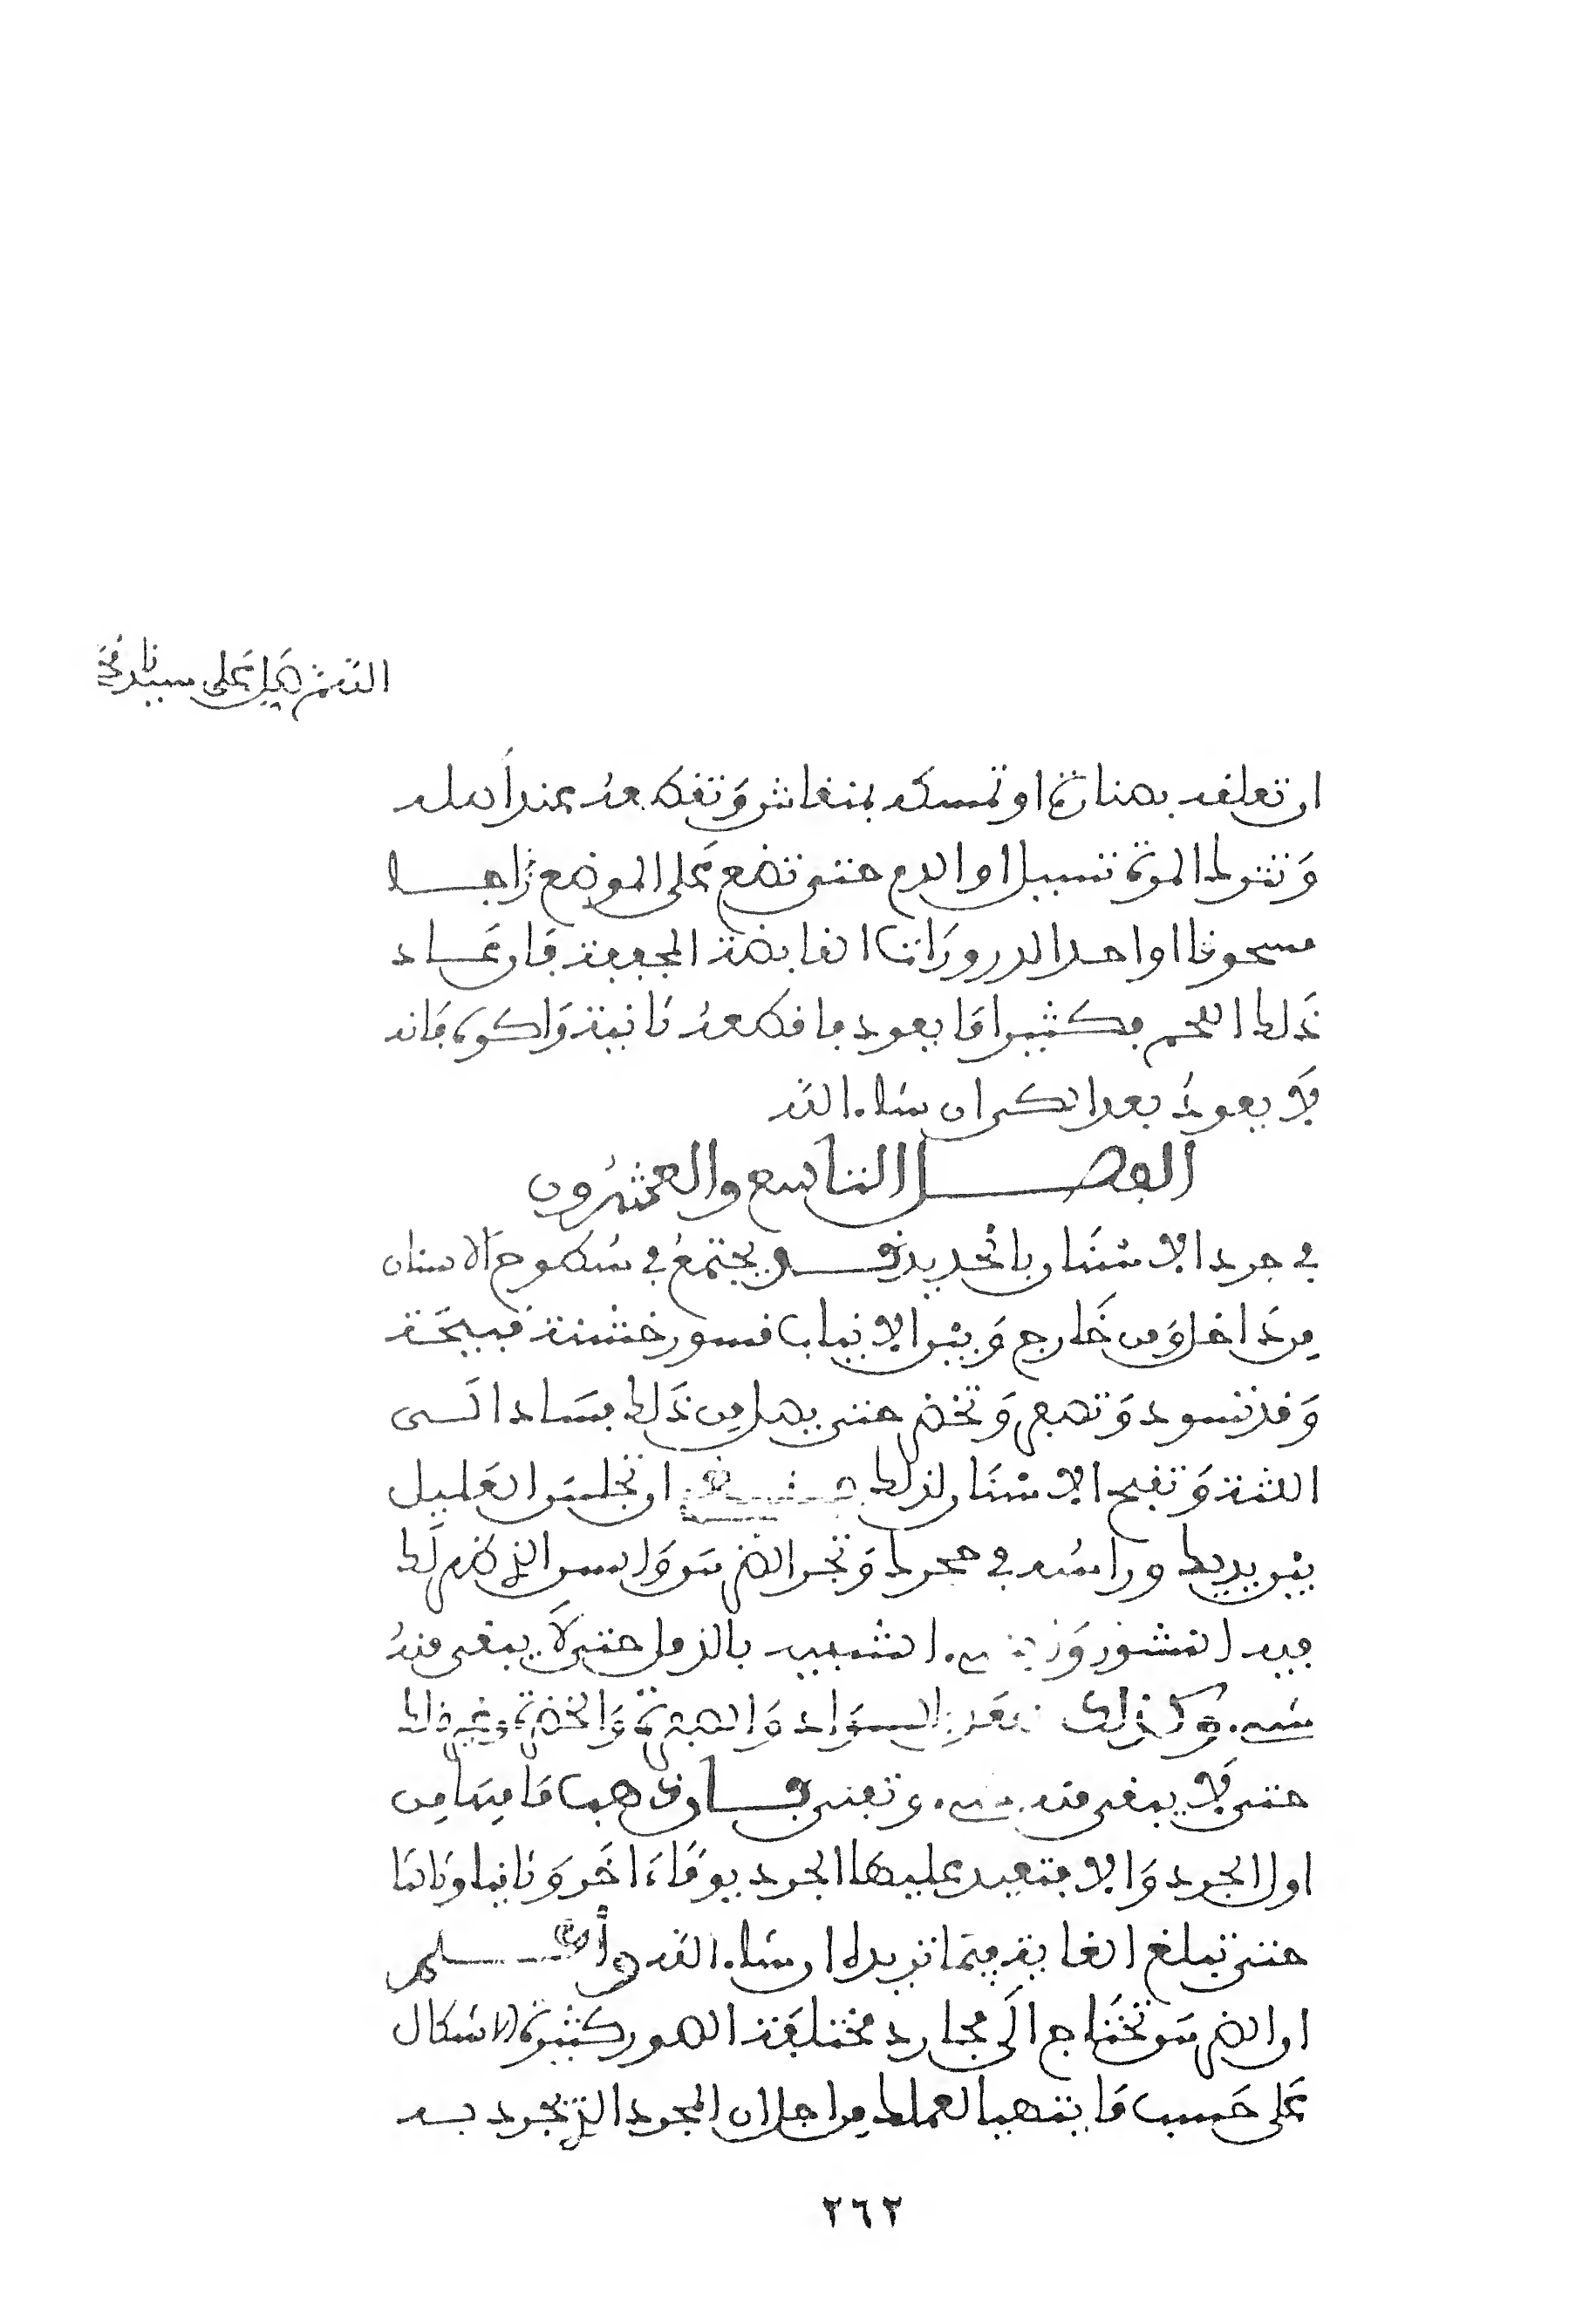 اللهم صل على سيدنا محمد
ان تعلقه بصنارة او تمسكه بمنقاش وتقطعه عند اصله
وتترك المدة تسيل او الدم حتى تضع على الموضع زاجا
مسحوقا او احد الذرورات القابضة المجففة فان عاد
ذلك اللحم فكثيرا ما يعود فاقطعه ثانية واكوه فانه
لا يعود بعد الكي ان شاء الله
الفصل التاسع والعشرون
في جرد الاسنان بالحديد قد يجتمع في سطوح الاسنان
من داخل ومن خارج وبين الانياب قشور خشنة قبيحة
وقد تسود وتصفر وتخضر حتى يصل من ذلك فساد الى
اللثة وتقبح الاسنان لذلك فينبغي ان تجلس العليل
بين يديك وراسه في حجرك وتجرد الضرس والسن الذي ظهر لك
فيه القشور والشيء الشبيه بالرمل حتى لا يبقى منه
شيء وكذلك تفعل بالسواد والصفرة والخضرة وغير ذلك
حتى لا يبقى منه شيء وتنقى فان ذهب ما فيها من
اول الجرد والا فتعيد عليها الجرد يوما ءاخر وثانيا وثالثا
حتى تبلغ الغاية فيما تريده ان شاء الله واعلم
ان الضرس تحتاج الى مجارد مختلفة الصور كثيرة الاشكال
على حسب ما يتهيا لعملك من اجل ان المجرد الذي يجرد به
٢٦٢